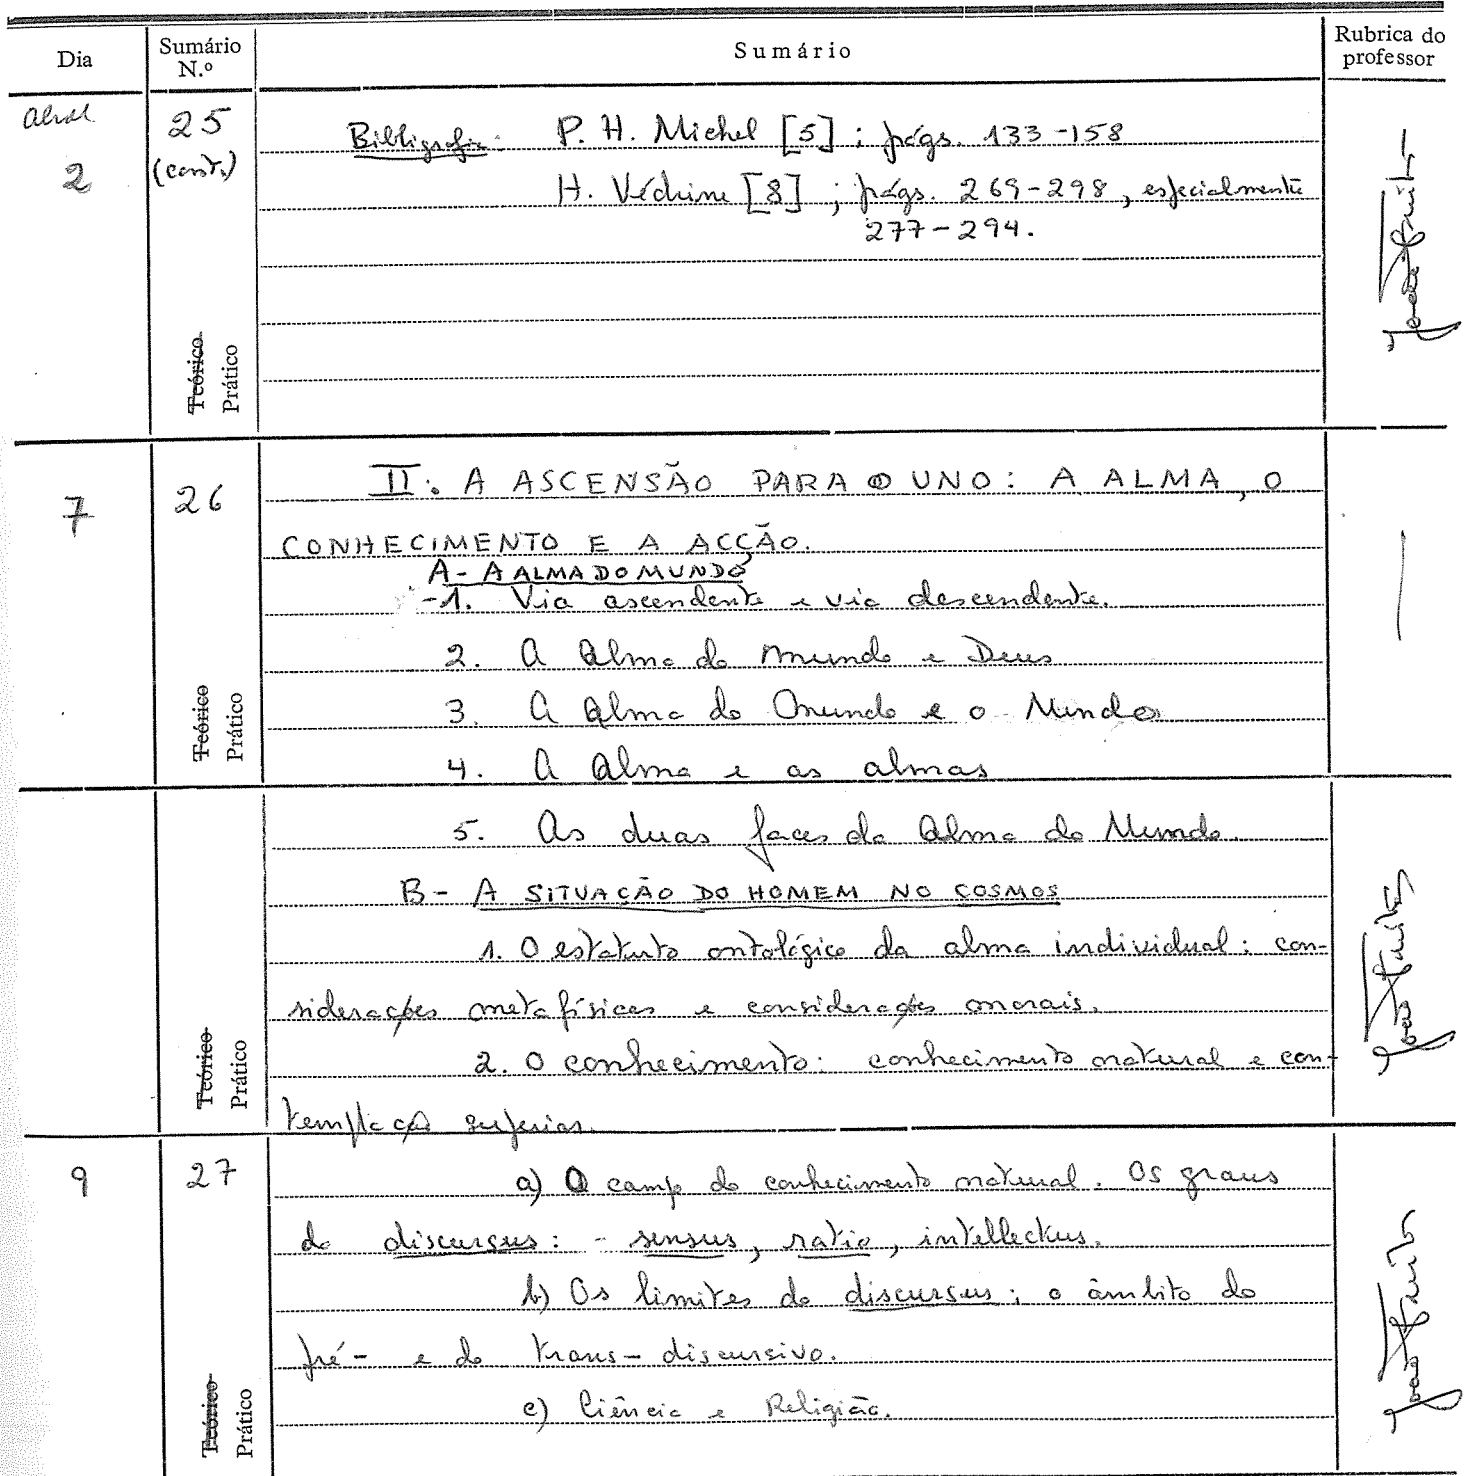 Dia
Sumário N.º
Sumário
Rubrica do professor
Abril
2
25
(cont.)
Bibliografia: P. H. Michel [5]; págs. 133-158
H. Védrine [8]; págs. 269-298, especialmente
277-294.
Teórico
Prático
7
26
II. A ASCENSÃO PARA O UNO: A ALMA, O
CONHECIMENTO E A ACÇÃO.
A - A ALMA DO MUNDO
-1. Via ascendente e via descendente.
2. A Alma do mundo e Deus
3. A Alma do Mundo e o Mundo
4. A Alma e as almas
Teórico
Prático
5. As duas faces da Alma do Mundo.
B - A SITUAÇÃO DO HOMEM NO COSMOS
1. O estatuto ontológico da alma individual: con-
siderações metafísicas e considerações morais.
2. O conhecimento: conhecimento natural e con-
templação superior.
Teórico
Prático
9
27
a) O campo do conhecimento natural. Os graus
do discursus: - sensus, ratio, intellectus.
b) Os limites do discursus; o âmbito do
pré- e do trans-discursivo.
c) Ciência e Religião.
Teórico
Prático